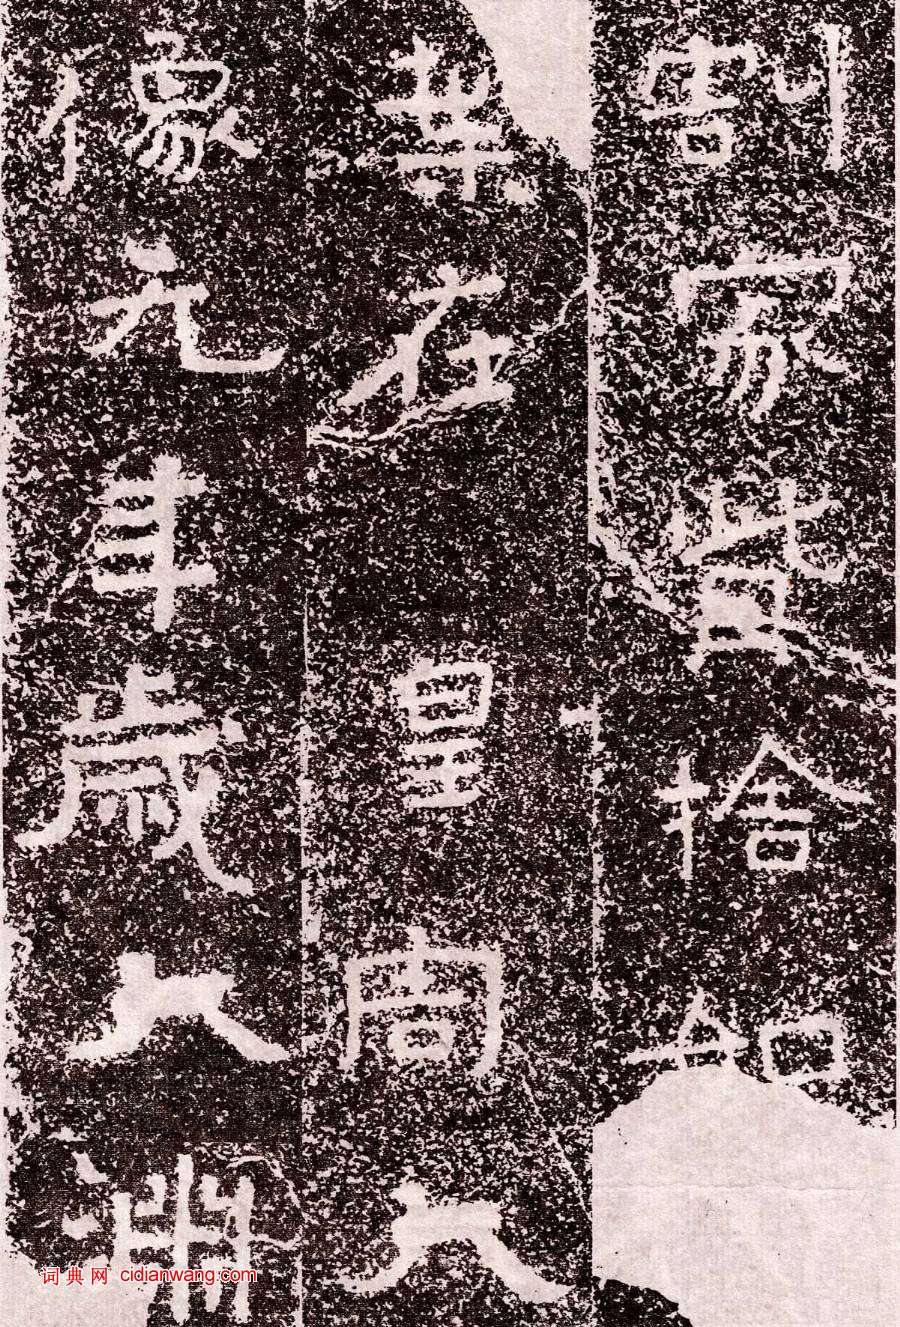 割家貲捨
在皇周大
像元年歲大淵
词典网 cidianwang.com